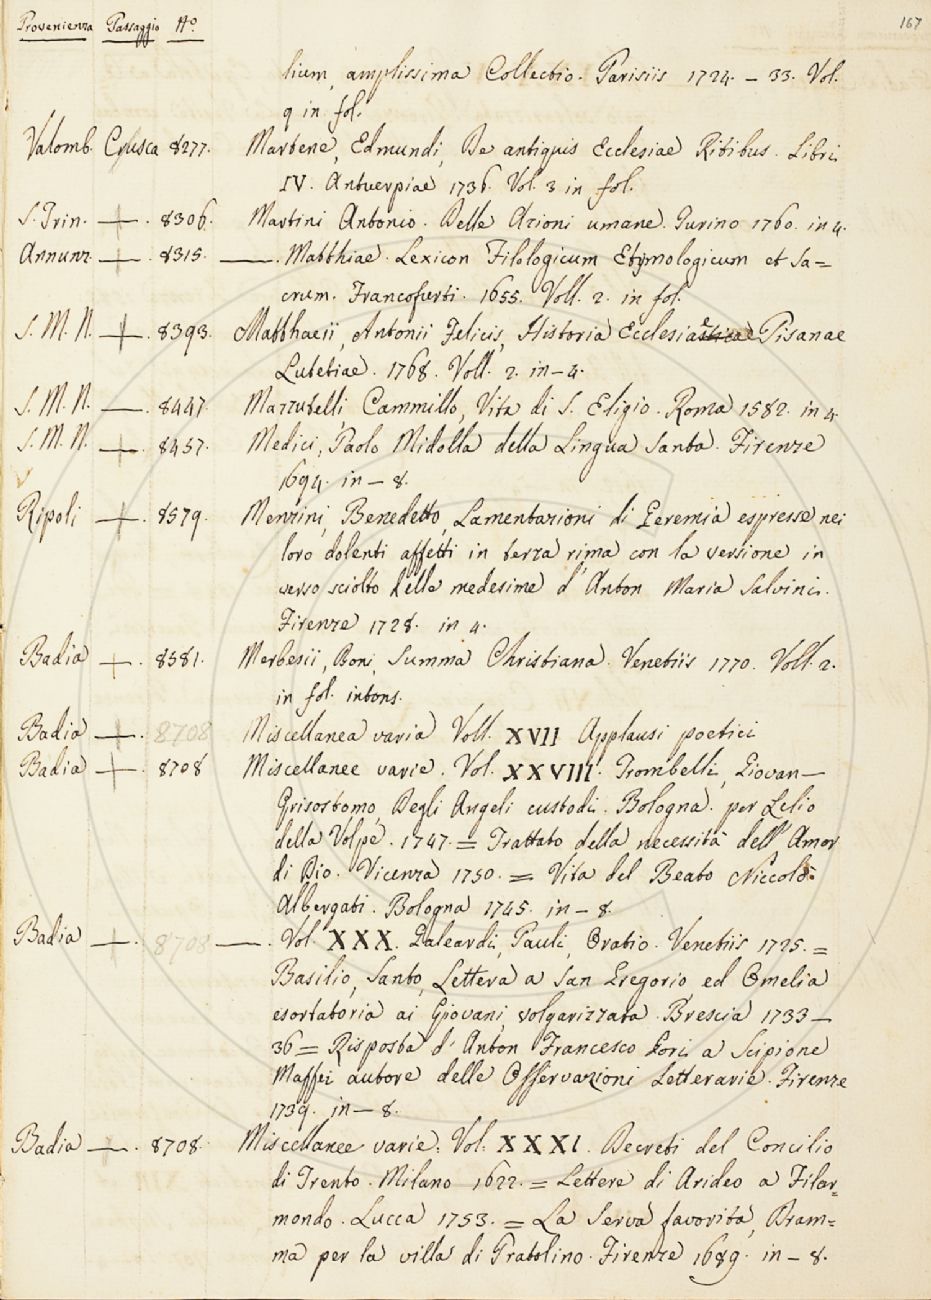 Provenienza Passaggio N.º 167
lium, amplissima Collectio. Parisiis 1724. – 33. Vol.
9 in fol.
Valomb. Crusca 8277. Martene, Edmundi, De antiquis Ecclesiae Ritibus. Libri
IV. Antuerpiae 1736. Vol. 3 in fol.
S. Trin. + . 8306. Martini Antonio. Delle Azioni umane. Turino 1760. in 4.
Annunz. + . 8315. —— . Matthiae. Lexicon Filologicum Etymologicum et Sa=
crum. Francofurti. 1655. Voll. 2. in fol.
S. M. N. + . 8393. Matthaeii, Antonii Felicis, Historia Ecclesiae Pisanae
Lutetiae. 1768. Voll. 2. in – 4.
S. M. N. — . 8447. Mazzutelli Cammillo, Vita di S. Eligio. Roma 1582. in 4.
S. M. N. + . 8457. Medici, Paolo Midolla della Lingua Santa. Firenze
1694. in – 8.
Ripoli + . 8579. Menzini, Benedetto, Lamentazioni di Geremia espresse nei
loro dolenti affetti in terza rima con la versione in
verso sciolto delle medesime d'Anton Maria Salvini.
Firenze 1728. in 4.
Badia + . 8581. Merbesii, Boni, Summa Christiana. Venetiis 1770. Voll. 2.
in fol. intons.
Badia + . 8708 Miscellanea varia Voll. XVII Applausi poetici
Badia + . 8708 Miscellanee varie. Vol. XXVIII. Trombelli, Giovan–
Grisostomo, Degli Angeli custodi. Bologna. per Lelio
della Volpe. 1747. = Trattato della necessità dell'Amor
di Dio. Vicenza 1750. = Vita del Beato Niccolò
Albergati. Bologna 1745. in – 8.
Badia + . 8708 —— . Vol. XXX. Galeardi, Pauli, Oratio. Venetiis 1725. =
Basilio, Santo, Lettera a San Gregorio ed Omelia
esortatoria ai Giovani, volgarizzata. Brescia 1733 –
36 = Risposta d'Anton Francesco Gori a Scipione
Maffei autore delle Osservazioni Letterarie. Firenze
1739. in – 8.
Badia — . 8708. Miscellanee varie. Vol. XXXI. Decreti del Concilio
di Trento. Milano 1622. = Lettere di Arideo a Filar=
mondo. Lucca 1753. = La Serva favorita, Dram=
ma per la villa di Pratolino. Firenze 1689. in – 8.